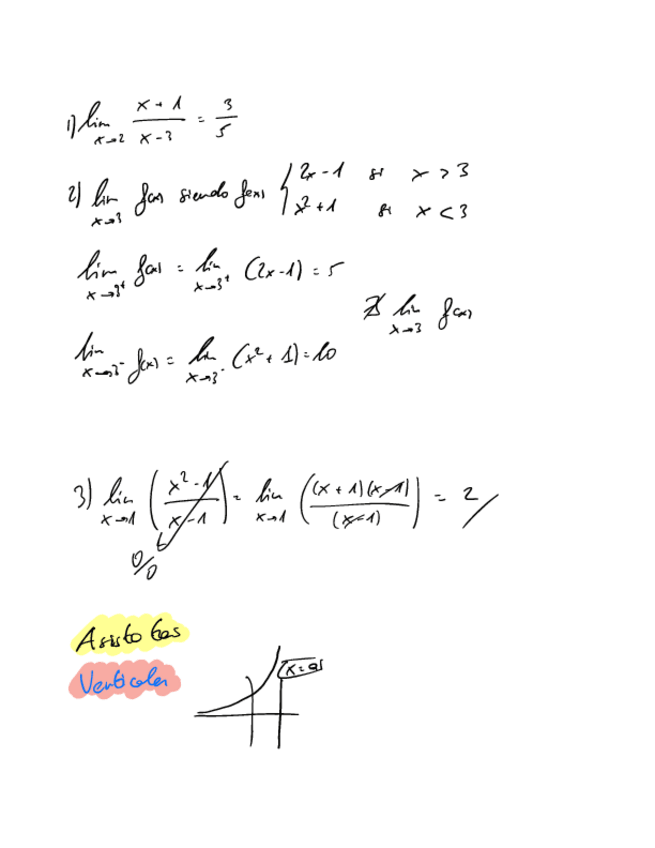 1) lim x→2 x+1/x-3 = 3/5
2) lim x→3 f(x) siendo f(x) { 2x-1 si x > 3
x²+1 si x < 3
lim x→3⁺ f(x) = lim x→3⁺ (2x-1) = 5
∄ lim x→3 f(x)
lim x→3⁻ f(x) = lim x→3⁻ (x²+1) = 10
3) lim x→1 (x²-1/x-1) = lim x→1 ((x+1)(x-1)/(x-1)) = 2
0/0
Asistotas
Verticales
x=a